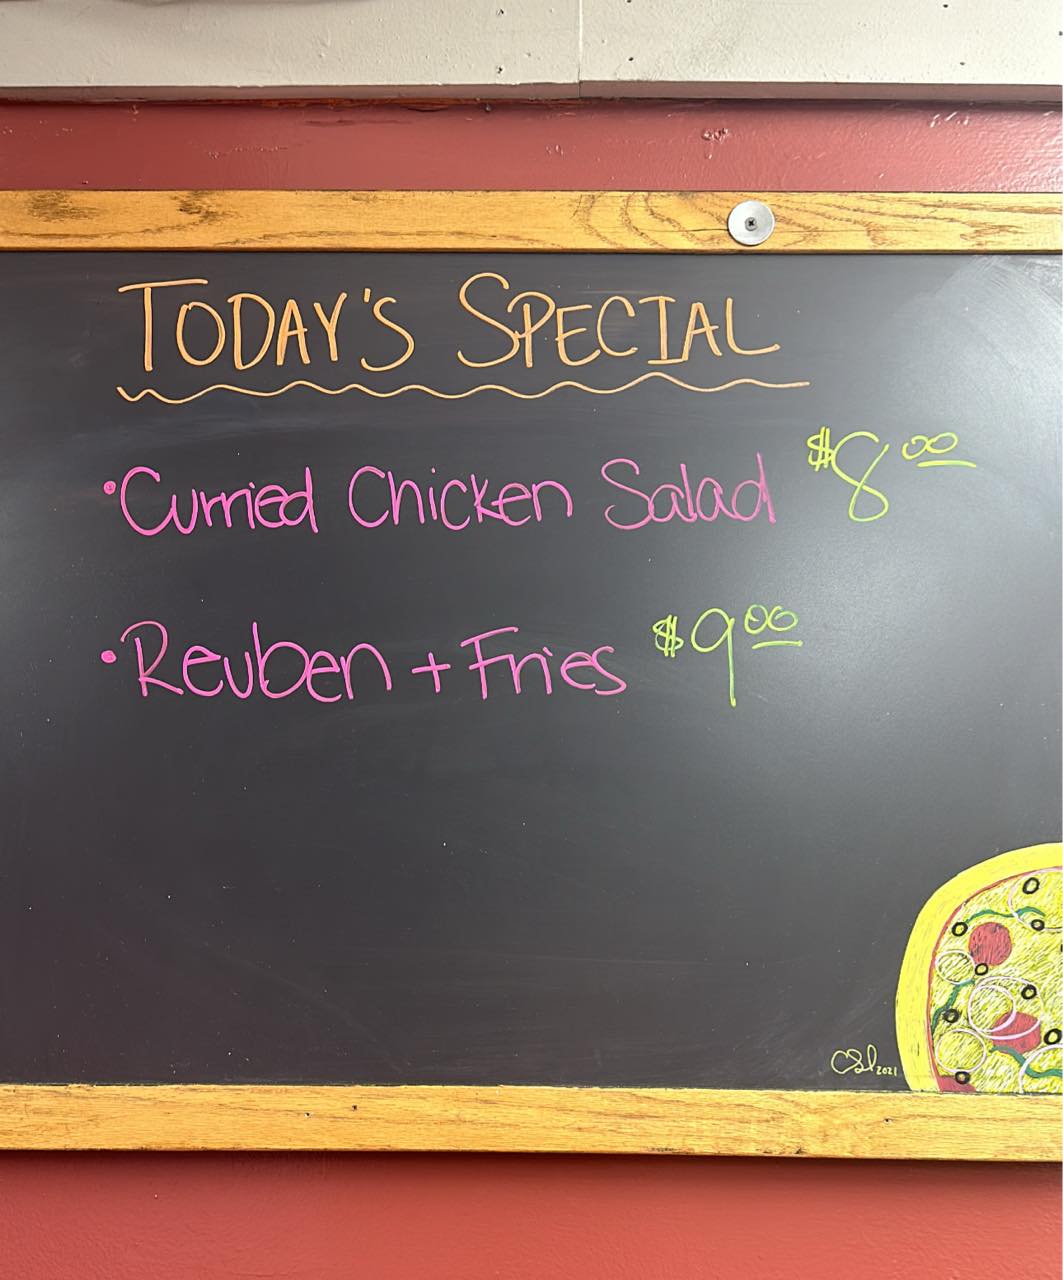 TODAY'S SPECIAL
•Curried Chicken Salad $8.00
•Reuben + Fries $9.00
2021